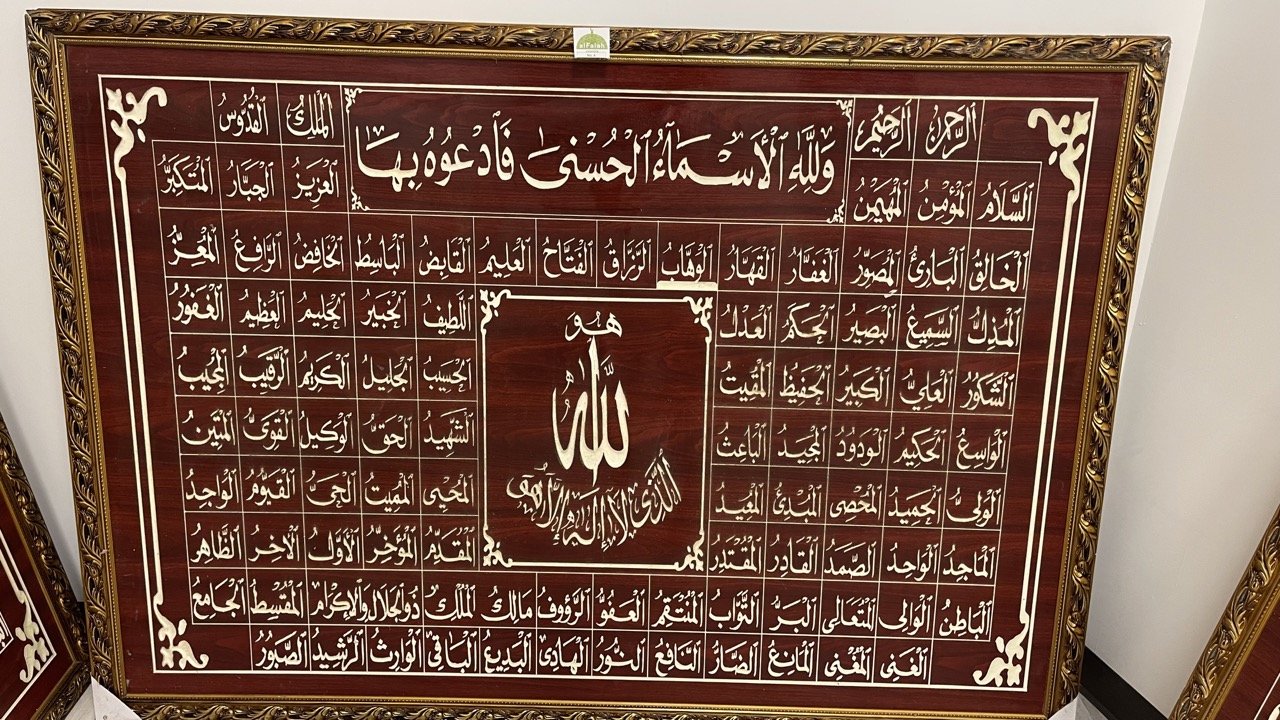 alFalah
وَلِلَّهِ الْأَسْمَاءُ الْحُسْنَىٰ فَادْعُوهُ بِهَا
الرَّحْمٰنُ الرَّحِيمُ الْمَلِكُ الْقُدُّوسُ
السَّلَامُ الْمُؤْمِنُ الْمُهَيْمِنُ الْعَزِيزُ الْجَبَّارُ الْمُتَكَبِّرُ
الْخَالِقُ الْبَارِئُ الْمُصَوِّرُ الْغَفَّارُ الْقَهَّارُ الْوَهَّابُ الرَّزَّاقُ الْفَتَّاحُ الْعَلِيمُ الْقَابِضُ الْبَاسِطُ الْخَافِضُ الرَّافِعُ الْمُعِزُّ
الْمُذِلُّ السَّمِيعُ الْبَصِيرُ الْحَكَمُ الْعَدْلُ اللَّطِيفُ الْخَبِيرُ الْحَلِيمُ الْعَظِيمُ الْغَفُورُ
الشَّكُورُ الْعَلِيُّ الْكَبِيرُ الْحَفِيظُ الْمُقِيتُ الْحَسِيبُ الْجَلِيلُ الْكَرِيمُ الرَّقِيبُ الْمُجِيبُ
الْوَاسِعُ الْحَكِيمُ الْوَدُودُ الْمَجِيدُ الْبَاعِثُ الشَّهِيدُ الْحَقُّ الْوَكِيلُ الْقَوِىُّ الْمَتِينُ
الْوَلِىُّ الْحَمِيدُ الْمُحْصِى الْمُبْدِئُ الْمُعِيدُ الْمُحْيِى الْمُمِيتُ الْحَىُّ الْقَيُّومُ الْوَاجِدُ
الْمَاجِدُ الْوَاحِدُ الصَّمَدُ الْقَادِرُ الْمُقْتَدِرُ الْمُقَدِّمُ الْمُؤَخِّرُ الْأَوَّلُ الْآخِرُ الظَّاهِرُ
الْبَاطِنُ الْوَالِى الْمُتَعَالِى الْبَرُّ التَّوَّابُ الْمُنْتَقِمُ الْعَفُوُّ الرَّؤُوفُ مَالِكُ الْمُلْكِ ذُوالْجَلَالِ وَالْإِكْرَامِ الْمُقْسِطُ الْجَامِعُ
الْغَنِىُّ الْمُغْنِى الْمَانِعُ الضَّارُّ النَّافِعُ النُّورُ الْهَادِى الْبَدِيعُ الْبَاقِى الْوَارِثُ الرَّشِيدُ الصَّبُورُ
هُوَ
اللّٰهُ
الَّذِى لَا إِلٰهَ إِلَّا هُوَ